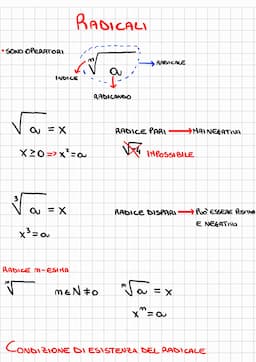 RADICALI
• SONO OPERATORI
ⁿ√a → RADICALE
INDICE
RADICANDO
√a = x RADICE PARI → MAI NEGATIVA
x ≥ 0 => x² = a √-4 IMPOSSIBILE
³√a = x RADICE DISPARI → PUÒ ESSERE POSITIVA
x³ = a E NEGATIVA
RADICE n-ESIMA
ⁿ√ n ∈ N ≠ 0 ⁿ√a = x
xⁿ = a
CONDIZIONE DI ESISTENZA DEL RADICALE